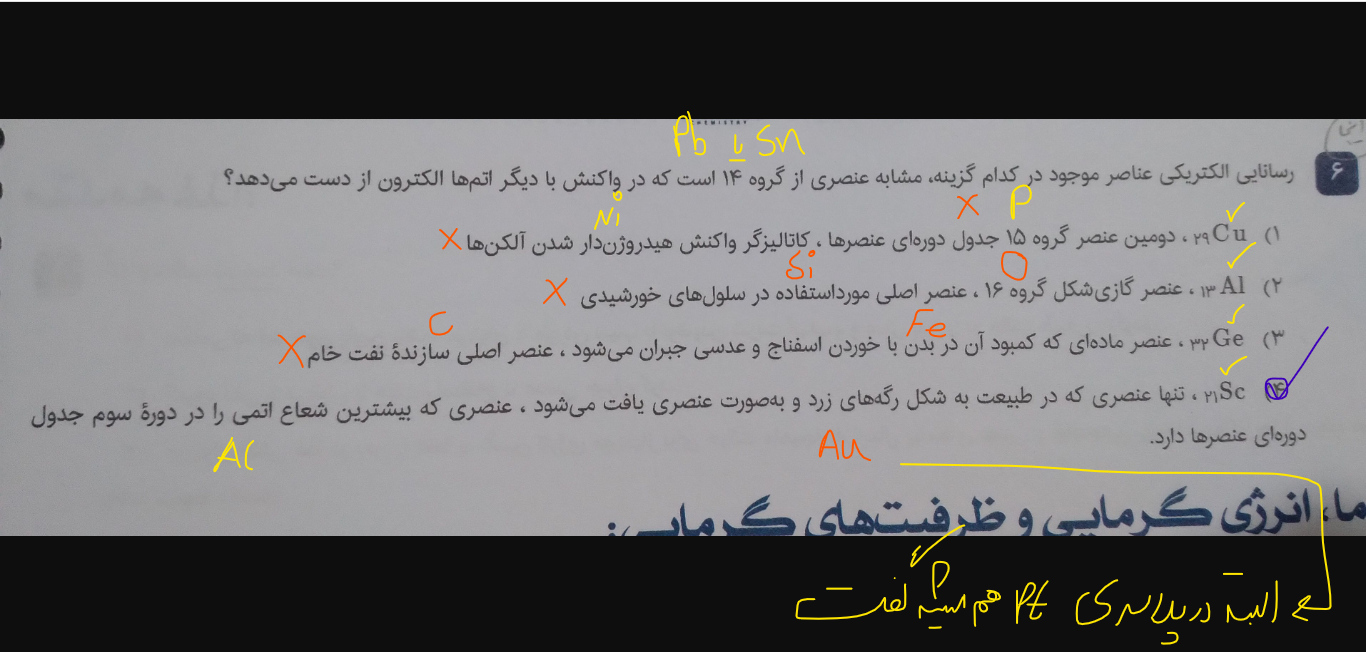 CHEMISTRY
Pb یا Sn
۶ رسانایی الکتریکی عناصر موجود در کدام گزینه، مشابه عنصری از گروه ۱۴ است که در واکنش با دیگر اتم‌ها الکترون از دست می‌دهد؟
Ni X P ✓
۱) ₂₉Cu ، دومین عنصر گروه ۱۵ جدول دوره‌ای عنصرها ، کاتالیزگر واکنش هیدروژن‌دار شدن آلکن‌ها X
Si O ✓
۲) ₁₃Al ، عنصر گازی‌شکل گروه ۱۶ ، عنصر اصلی مورداستفاده در سلول‌های خورشیدی X
C Fe ✓
۳) ₃₂Ge ، عنصر ماده‌ای که کمبود آن در بدن با خوردن اسفناج و عدسی جبران می‌شود ، عنصر اصلی سازندهٔ نفت خام X
✓
۴) ₂₁Sc ، تنها عنصری که در طبیعت به شکل رگه‌های زرد و به‌صورت عنصری یافت می‌شود ، عنصری که بیشترین شعاع اتمی را در دورهٔ سوم جدول
دوره‌ای عنصرها دارد.
Au
ما، انرژی گرمایی و ظرفیت‌های گرمایی:
البته در Pt هم گفت